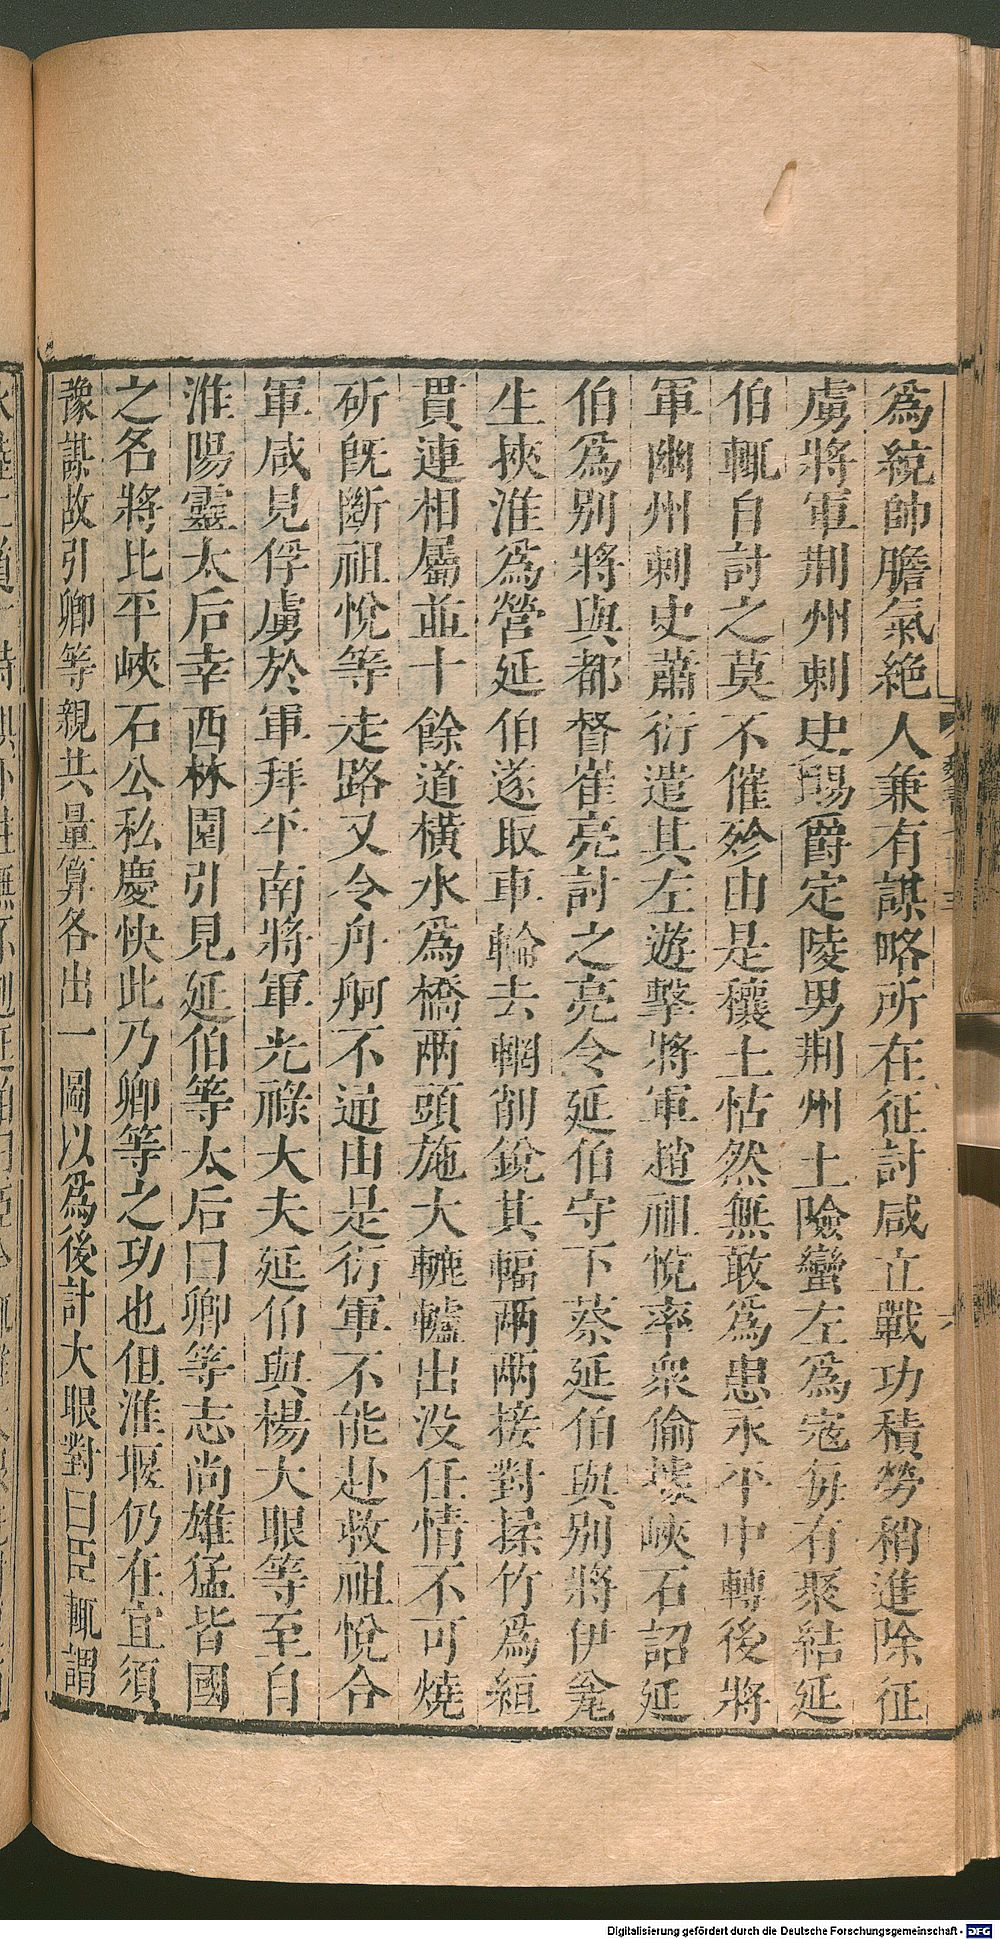 爲統帥膽氣絶人兼有謀略所在征討咸立戰功積勞稍進除征
虜將軍荆州刺史賜爵定陵男荆州土險蠻左爲寇每有聚結延
伯輒自討之莫不催殄由是穰土怗然無敢爲患永平中轉後將
軍幽州刺史蕭衍遣其左遊擊將軍趙祖悅率衆偷據峽石詔延
伯爲别將與都督崔亮討之亮令延伯守下蔡延伯與别將伊瓫
生挾淮爲營延伯遂取車輪去輞削銳其輻兩兩接對揉竹爲絙
貫連相屬並十餘道橫水爲橋兩頭施大轆轤出没任情不可燒
斫既斷祖悅等走路又令舟舸不通由是衍軍不能赴救祖悅合
軍咸見俘虜於軍拜平南將軍光祿大夫延伯與楊大眼等至自
淮陽靈太后幸西林園引見延伯等太后曰卿等志尚雄猛皆國
之名將比平峽石公私慶快此乃卿等之功也但淮堰仍在宜須
豫謀故引卿等親共量算各出一圖以爲後計大眼對曰臣輒謂
Digitalisierung gefördert durch die Deutsche Forschungsgemeinschaft - DFG